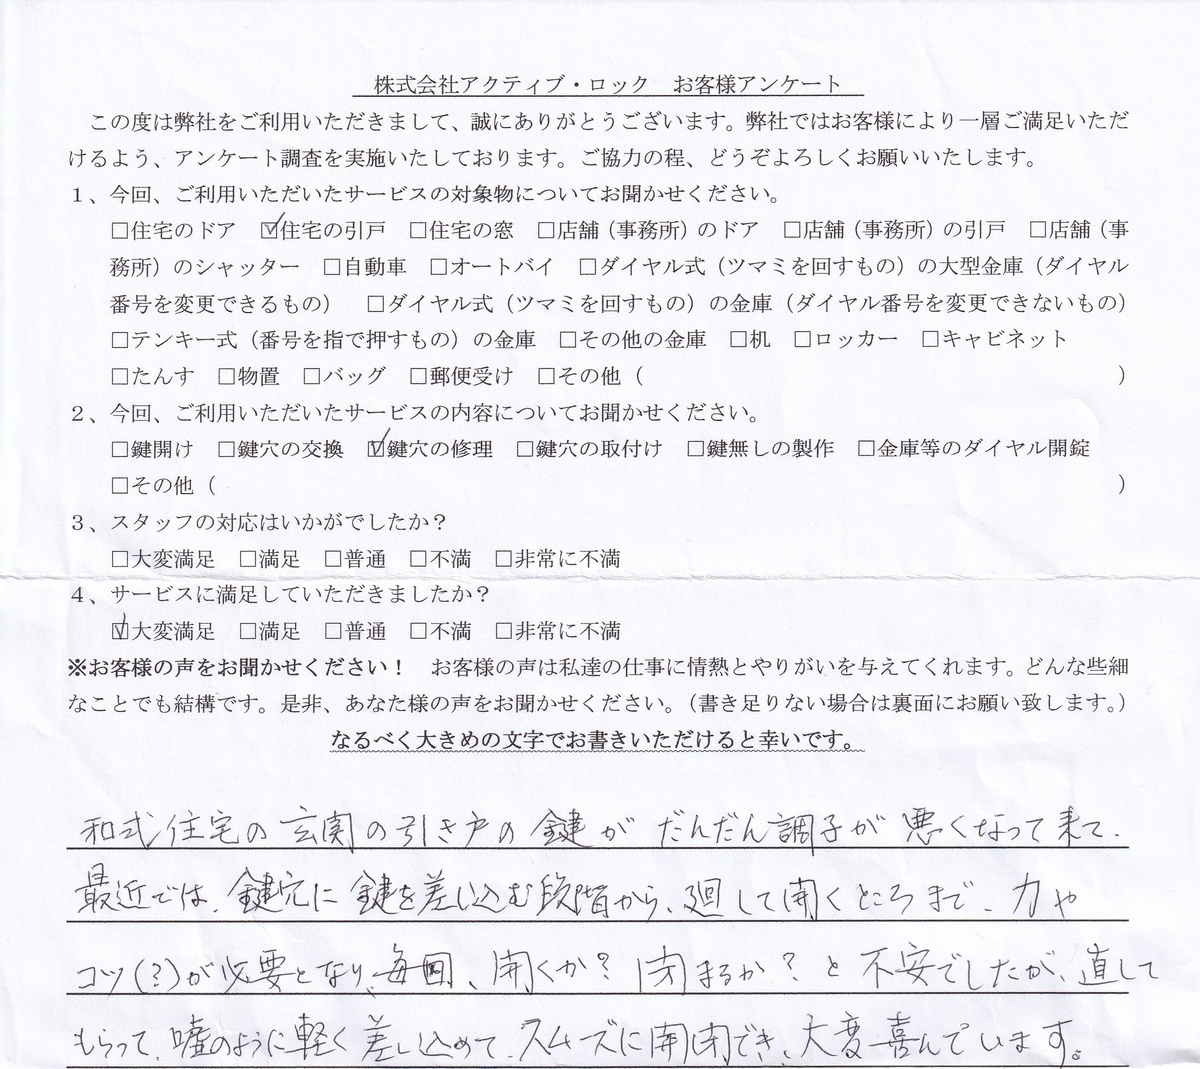 株式会社アクティブ・ロック　お客様アンケート
この度は弊社をご利用いただきまして、誠にありがとうございます。弊社ではお客様により一層ご満足いただ
けるよう、アンケート調査を実施いたしております。ご協力の程、どうぞよろしくお願いいたします。
１、今回、ご利用いただいたサービスの対象物についてお聞かせください。
□住宅のドア　☑住宅の引戸　□住宅の窓　□店舗（事務所）のドア　□店舗（事務所）の引戸　□店舗（事
務所）のシャッター　□自動車　□オートバイ　□ダイヤル式（ツマミを回すもの）の大型金庫（ダイヤル
番号を変更できるもの）　□ダイヤル式（ツマミを回すもの）の金庫（ダイヤル番号を変更できないもの）
□テンキー式（番号を指で押すもの）の金庫　□その他の金庫　□机　□ロッカー　□キャビネット
□たんす　□物置　□バッグ　□郵便受け　□その他（　　　　　　　　　　）
２、今回、ご利用いただいたサービスの内容についてお聞かせください。
□鍵開け　□鍵穴の交換　☑鍵穴の修理　□鍵穴の取付け　□鍵無しの製作　□金庫等のダイヤル開錠
□その他（　　　　　　　　　　）
３、スタッフの対応はいかがでしたか？
□大変満足　□満足　□普通　□不満　□非常に不満
４、サービスに満足していただきましたか？
☑大変満足　□満足　□普通　□不満　□非常に不満
※お客様の声をお聞かせください！　お客様の声は私達の仕事に情熱とやりがいを与えてくれます。どんな些細
なことでも結構です。是非、あなた様の声をお聞かせください。（書き足りない場合は裏面にお願い致します。）
なるべく大きめの文字でお書きいただけると幸いです。
和式住宅の玄関の引き戸の鍵がだんだん調子が悪くなって来て、
最近では、鍵穴に鍵を差し込む段階から、廻して開くところまで、力や
コツ(?)が必要となり、毎回、開くか？閉まるか？と不安でしたが、直して
もらって、嘘のように軽く差し込めて、スムーズに開閉でき、大変喜んでいます。